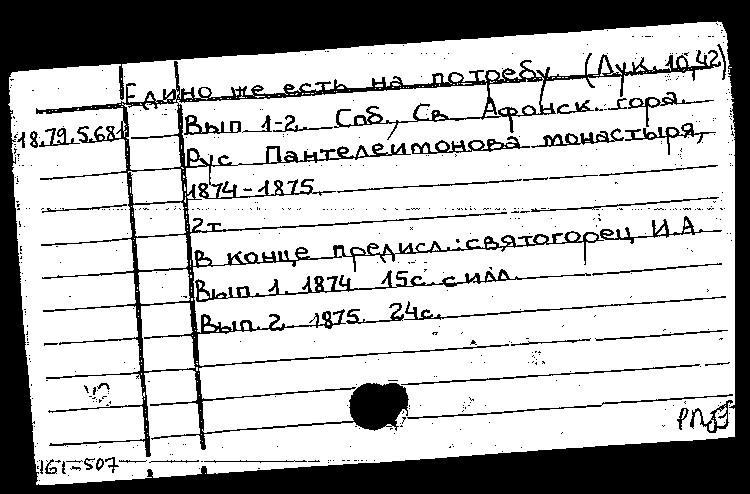 Едино же есть на потребу. (Лук. 10,42)
18.79.5.681 Вып. 1-2. Спб., Св. Афонск. гора.
Рус. Пантелеймонова монастыря,
1874-1875.
2т.
В конце предисл.: святогорец И.А.
Вып. 1. 1874 15с. с илл.
Вып. 2 1875. 24с.
161-507